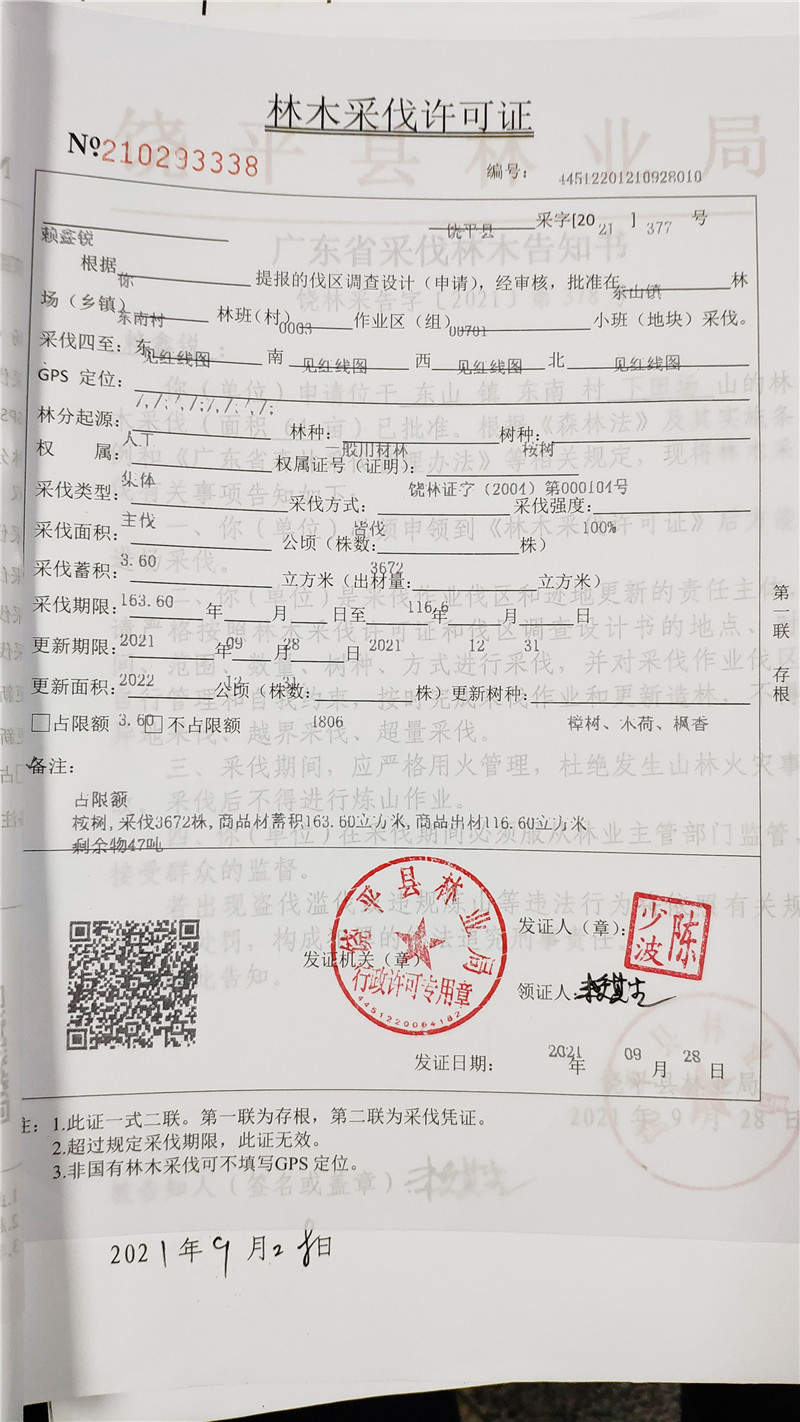 林木采伐许可证
№210293338
编号： 44512201210928010
饶平县 采字[2021] 377 号
赖鑫锐
根据 你 提报的伐区调查设计（申请），经审核，批准在 东山镇 林
场（乡镇） 东南村 林班（村） 0003 作业区（组） 00701 小班（地块）采伐。
采伐四至：东 见红线图 南 见红线图 西 见红线图 北 见红线图
GPS 定位： /,/;/,/;/,/;/,/;
林分起源： 人工 林种： 一般用材林 树种： 桉树
权 属： 集体 权属证号（证明）： 饶林证字（2004）第000104号
采伐类型： 主伐 采伐方式： 皆伐 采伐强度： 100%
采伐面积： 3.60 公顷（株数： 3672 株）
采伐蓄积： 163.60 立方米（出材量： 116.6 立方米）
采伐期限： 2021 年 09 月 28 日至 2021 年 12 月 31 日
更新期限： 2022 年 12 月 31 日
更新面积： 3.60 公顷（株数： 1806 株）更新树种： 樟树、木荷、枫香
□占限额 □不占限额
备注：
占限额
桉树,采伐3672株,商品材蓄积163.60立方米,商品出材116.60立方米
剩余物47吨
第一联 存根
发证机关（章）
饶平县林业局
行政许可专用章
4451220064182
发证人（章）：
陈少波
领证人：
发证日期： 2021 年 09 月 28 日
注：1.此证一式二联。第一联为存根，第二联为采伐凭证。
2.超过规定采伐期限，此证无效。
3.非国有林木采伐可不填写GPS 定位。
2021年9月28日
饶平县林业局
广东省采伐林木告知书
饶林采告字〔2021〕第 378
你（单位）申请位于 东山 镇 东南 村 下田场 山的林
木采伐（面积 亩）已批准。根据《森林法》及其实施条
理办法》等相关规定，现将林木采
有关事项告知如下
一、你（单位）须申领到《林木采伐许可证》后方能
场采伐。
二、你（单位）是采伐作业伐区和迹地更新的责任主体，
请严格按照林木采伐许可证和伐区调查设计书的地点、
范围、数量、树种、方式进行采伐，并对采伐作业伐区
自行管理和自我约束，按时完成采伐作业和更新造林，不得
异地采伐、越界采伐、超量采伐。
三、采伐期间，应严格用火管理，杜绝发生山林火灾事
采伐后不得进行炼山作业。
四、你（单位）在采伐期间必须服从林业主管部门监管，
接受群众的监督。
若出现盗伐滥伐或违规炼山等违法行为
处罚，构成犯罪的依法追究刑事责任
此告知。
饶平县林业局
2021 年 9 月 28 日
被告知人（签名或盖章）：